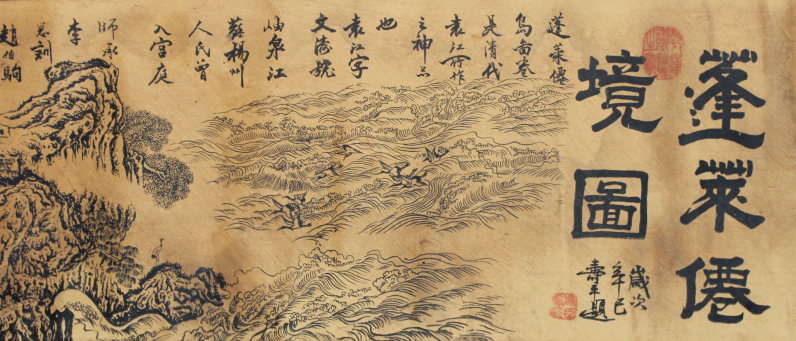 蓬萊僊
境圖
歲次
辛巳
壽平題
蓬萊僊
島啚卷
是清代
袁江所作
之神品
也
袁江字
文濤號
岫泉江
蘇楊州
人民曾
入宮庭
師承
李
思訓
趙伯駒